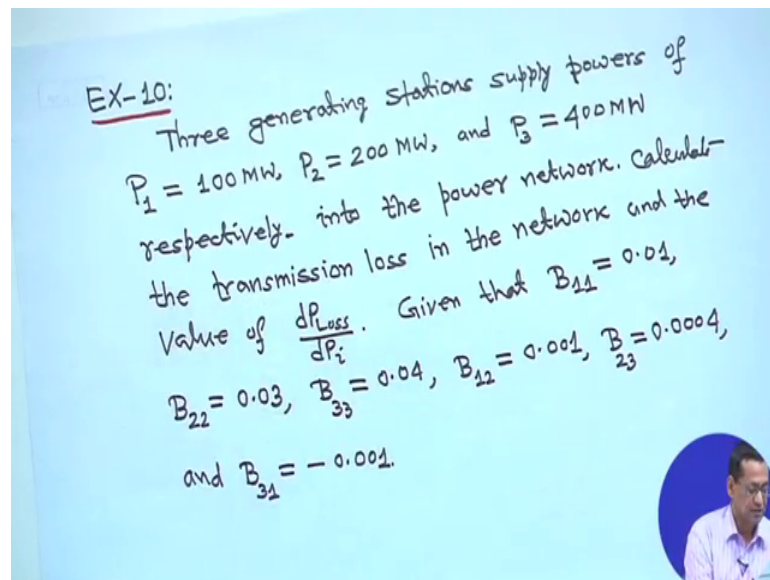 EX-10:
Three generating stations supply powers of
P₁ = 100 MW, P₂ = 200 MW, and P₃ = 400 MW
respectively into the power network. Calculate
the transmission loss in the network and the
value of dP_Loss/dP_i. Given that B₁₁ = 0.01,
B₂₂ = 0.03, B₃₃ = 0.04, B₁₂ = 0.001, B₂₃ = 0.0004,
and B₃₁ = - 0.001.